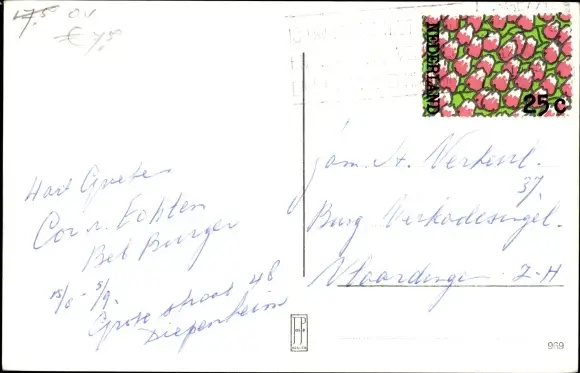 17.50 OV
€ 7,50
NEDERLAND
25c
Hart Groeten
Cor v. Echten
Bet Burger
15/8 - 5/9.
Grote straat 48
Diepenheim
Fam. A.
37.
Burg Verkadesingel.
Vlaardingen Z-H
JP
969